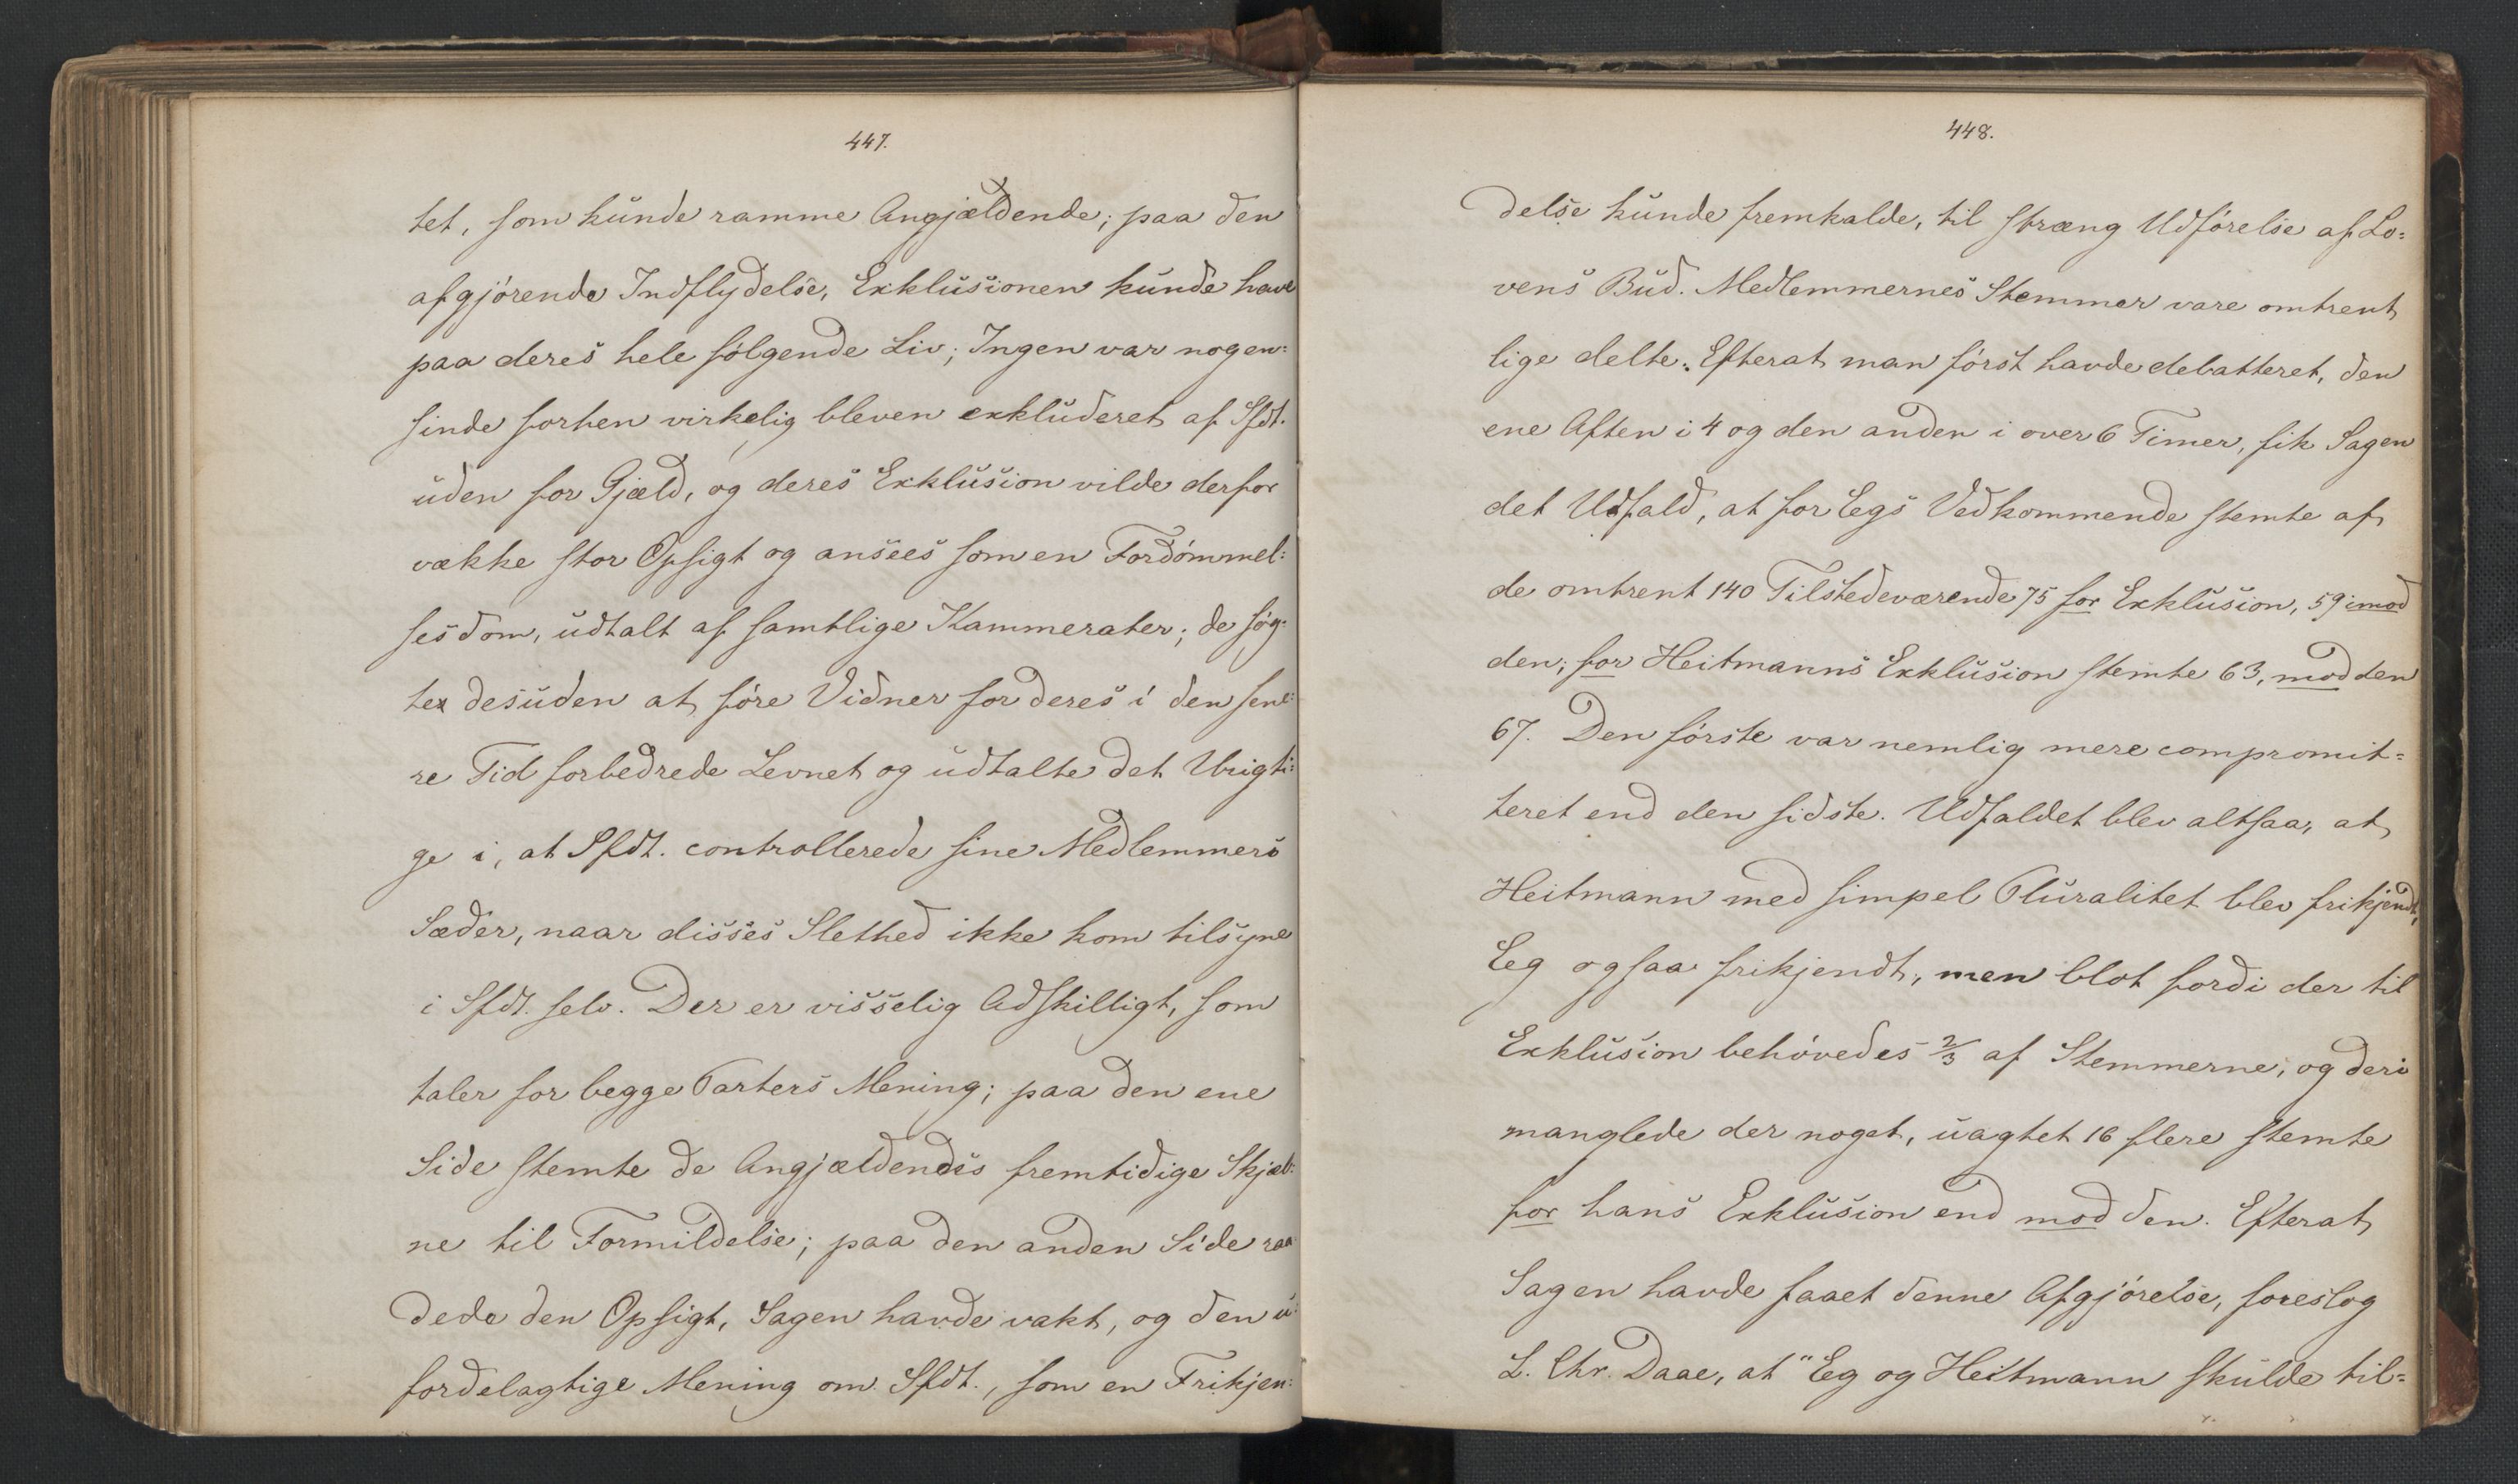 447.
tet, som kunde ramme Angjældende; paa den
afgjørende Indflydelse, Exklusionen kunde have
paa deres hele følgende Liv; Ingen var nogen=
sinde forhen virkelig bleven exkluderet af Sfdt.
uden for Gjæld, og deres Exklusion vilde derfor
vække stor Opsigt og ansees som en Fordømmel=
sesdom, udtalt af samtlige Kammerater; de søg=
te desuden at føre Vidner for deres i den sene=
re Tid forbedrede Levnet og udtalte det Urigti=
ge i, at Sfdt. controllerede sine Medlemmers
Sæder, naar disses Slethed ikke kom tilsyne
i Sfdt. selv. Der er visselig Adskilligt, som
taler for begge Parters Mening; paa den ene
Side stemte de Angjældendes fremtidige Skjæb=
ne til Formildelse; paa den anden Side raa
dede den Opsigt, Sagen havde vakt, og den u=
fordelagtige Mening om Sfdt., som en Frikjen=
448.
delse kunde fremkalde, til stræng Udførelse af Lo=
vens Bud. Medlemmernes Stemmer vare omtrent
lige delte. Efterat man først havde debatteret, den
ene Aften i 4 og den anden i over 6 Timer, fik Sagen
det Udfald, at for Egs Vedkommende stemte af
de omtrent 140 Tilstedeværende 75 for Exklusion, 59 imod
den; for Heitmanns Exklusion stemte 63, mod den
67. Den første var nemlig mere compromit=
teret end den sidste. Udfaldet blev altsaa, at
Heitmann med simpel Pluralitet blev frikjendt,
Eg ogsaa frikjendt, men blot fordi der til
Exklusion behøvedes 2/3 af Stemmerne, og deri
manglede der noget, uagtet 16 flere stemte
for hans Exklusion end mod den. Efterat
Sagen havde faaet denne Afgjørelse, foreslog
L. Chr. Daae, at "Eg og Heitmann skulde til=